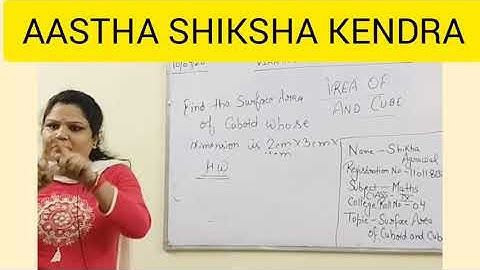 AASTHA SHIKSHA KENDRA
AREA OF
AND CUBE
Find the Surface Area
of Cuboid whose
dimension is 2cm×3cm×
HW
Name - Shikha
Agrawal
Registration No -
Subject - Maths
College Roll No - 04
Topic - Surface Area
of Cuboid and Cub